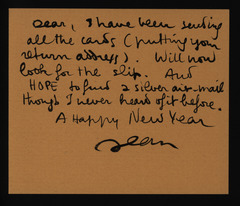 Dear, I have been sending
all the cards (putting your
return address). Will now
look for the slip. And
HOPE to find 2 silver air-mail
though I never heard of it before.
A Happy New Year